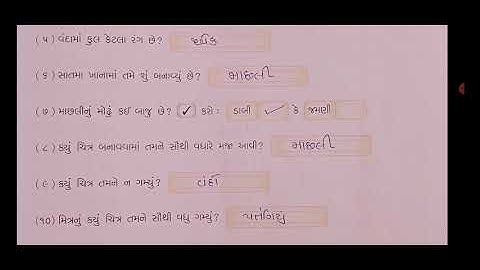 (૫) વંદામાં કુલ કેટલા રંગ છે?
(૬) સાતમા ખાનામાં તમે શું બનાવ્યું છે? માછલી
(૭) માછલીનું મોઢું કઈ બાજુ છે? ✓ કરો: ડાબી ✓ કે જમણી
(૮) કયું ચિત્ર બનાવવામાં તમને સૌથી વધારે મજા આવી? માછલી
(૯) કયું ચિત્ર તમને ન ગમ્યું? વંદો
(૧૦) મિત્રનું કયું ચિત્ર તમને સૌથી વધુ ગમ્યું? પતંગિયું